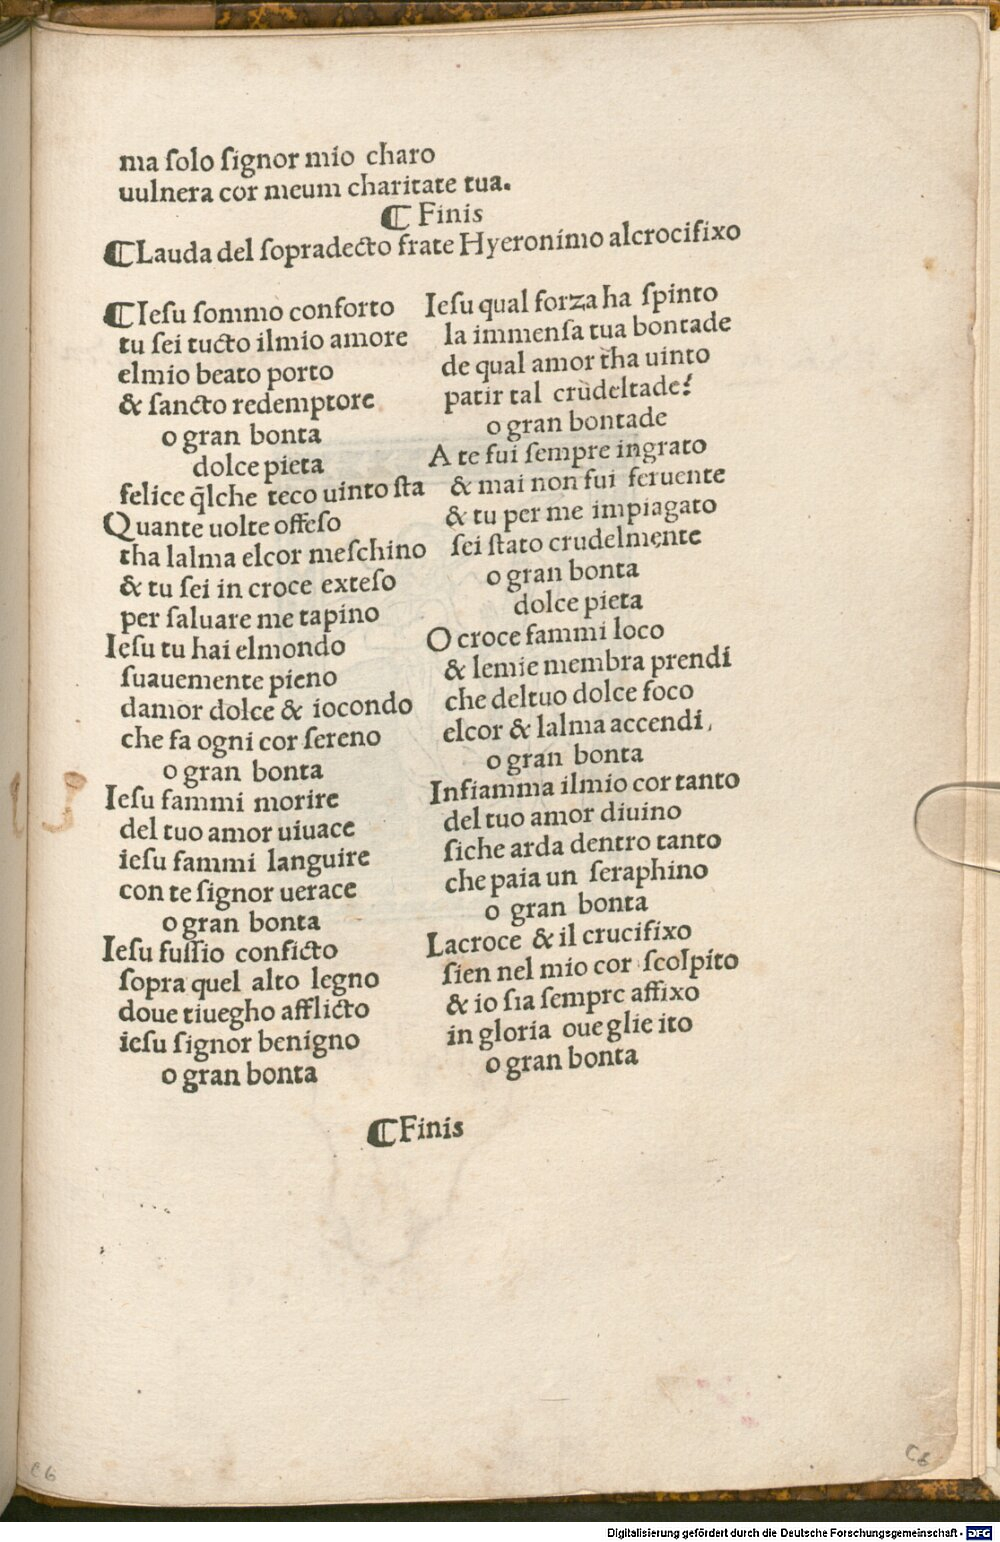 ma ſolo ſignor mio charo
uulnera cor meum charitate tua.
⸿ Finis
⸿Lauda del ſopradecto frate Hyeronimo alcrocifixo
⸿Ieſu ſommo conforto
tu ſei tucto ilmio amore
elmio beato porto
& ſancto redemptore
o gran bonta
dolce pieta
felice q̃lche teco uinto ſta
Quante uolte offeſo
tha lalma elcor meſchino
& tu ſei in croce exteſo
per ſaluare me tapino
Ieſu tu hai elmondo
ſuauemente pieno
damor dolce & iocondo
che fa ogni cor ſereno
o gran bonta
Ieſu fammi morire
del tuo amor uiuace
ieſu fammi languire
con te ſignor uerace
o gran bonta
Ieſu fuſſio conficto
ſopra quel alto legno
doue tiuegho afflicto
ieſu ſignor benigno
o gran bonta
Ieſu qual forza ha ſpinto
la immenſa tua bontade
de qual amor tha uinto
patir tal crudeltade?
o gran bontade
A te fui ſempre ingrato
& mai non fui feruente
& tu per me impiagato
ſei ſtato crudelmente
o gran bonta
dolce pieta
O croce fammi loco
& lemie membra prendi
che deltuo dolce foco
elcor & lalma accendi,
o gran bonta
Infiamma ilmio cor tanto
del tuo amor diuino
ſiche arda dentro tanto
che paia un ſeraphino
o gran bonta
Lacroce & il crucifixo
ſien nel mio cor ſcolpito
& io ſia ſempre affixo
in gloria oue glie ito
o gran bonta
⸿Finis
c6
c6
Digitalisierung gefördert durch die Deutsche Forschungsgemeinschaft - DFG